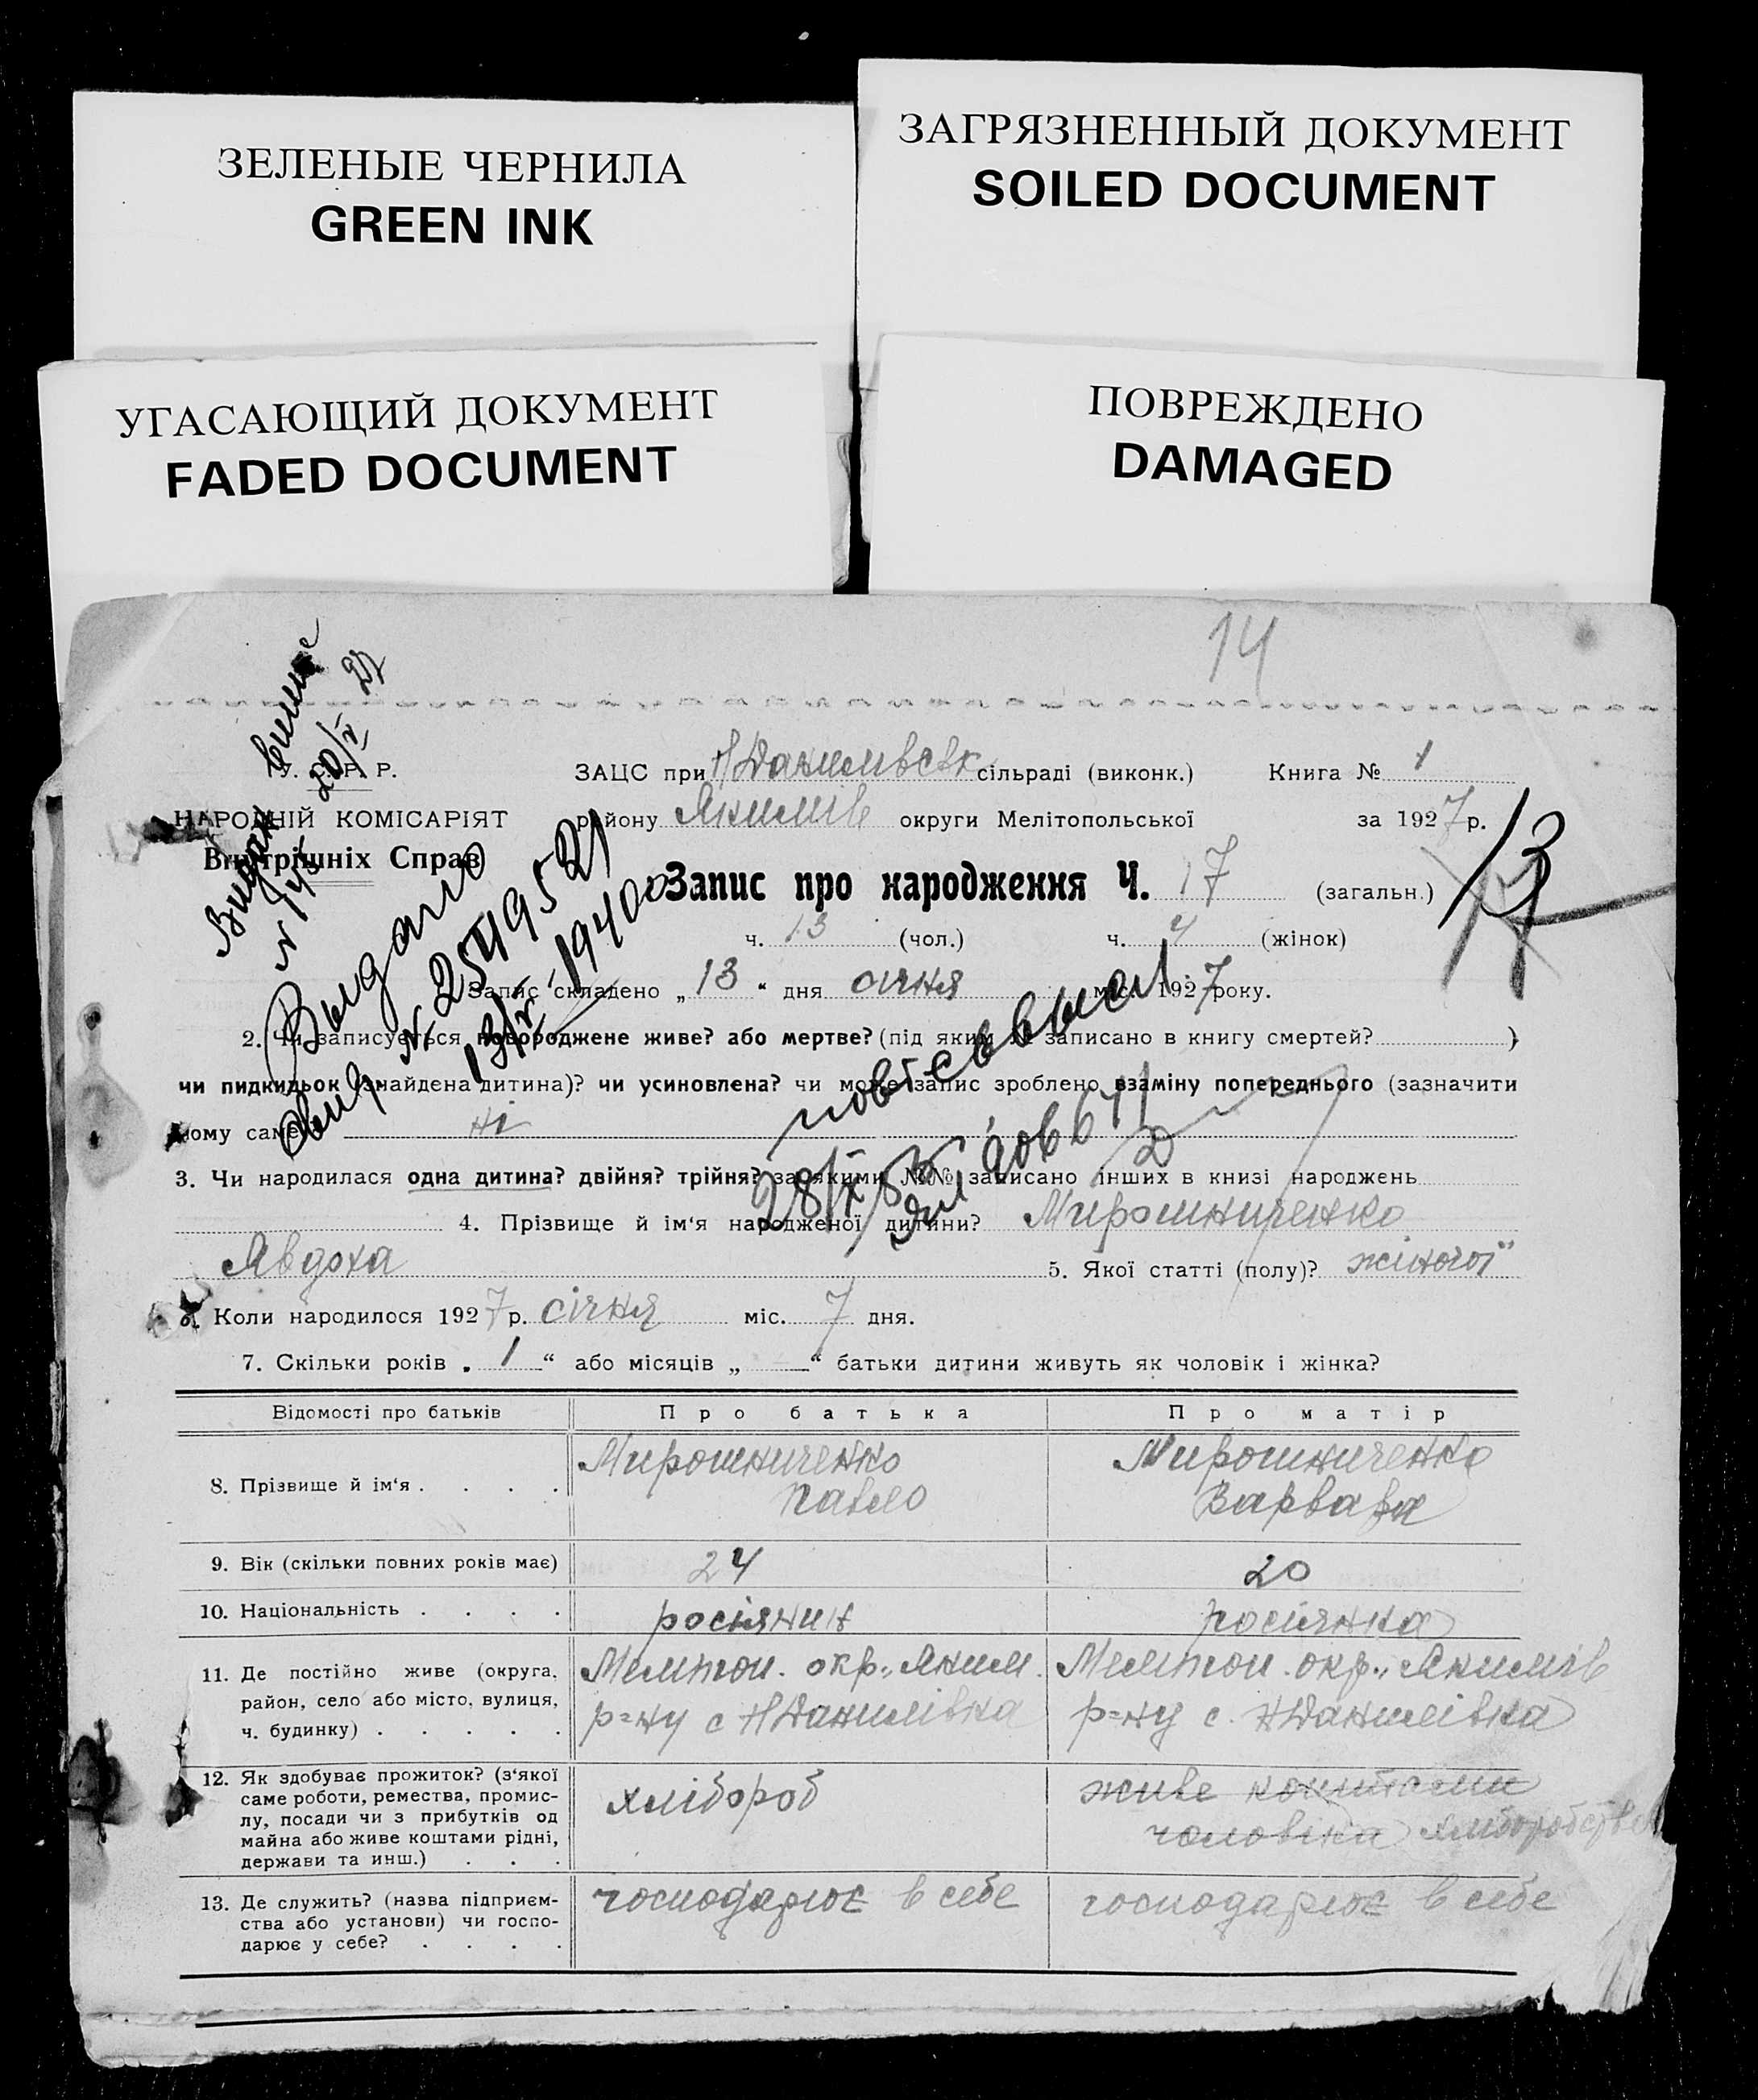 ЗЕЛЕНЫЕ ЧЕРНИЛА
GREEN INK
ЗАГРЯЗНЕННЫЙ ДОКУМЕНТ
SOILED DOCUMENT
УГАСАЮЩИЙ ДОКУМЕНТ
FADED DOCUMENT
ПОВРЕЖДЕНО
DAMAGED
14
У. С. Р. Р.
НАРОДНІЙ КОМІСАРІЯТ
Внутрішніх Справ
ЗАЦС при Н Данилівськ сільраді (виконк.) Книга № 1
району Якимів округи Мелітопольської за 1927 р.
Запис про народження Ч. 17 (загальн.)
13
ч. 13 (чол.) ч. 4 (жінок)
Запис складено „ 13 “ дня січня міс. 1927 року.
Выдано
2. Чи записується новороджене живе? або мертве? (під яким № записано в книгу смертей? )
чи пидкидьок (знайдена дитина)? чи усиновлена? чи може запис зроблено взаміну попереднього (зазначити
чому саме) ні
3. Чи народилася одна дитина? двійня? трійня? за якими №№ записано інших в книзі народжень
4. Прізвище й ім'я народженої дитини? Мирошниченко
Явдоха 5. Якої статті (полу)? жіночої
6. Коли народилося 1927 р. січня міс. 7 дня.
7. Скільки років „ 1 “ або місяців „ — “ батьки дитини живуть як чоловік і жінка?
Відомості про батьків Про батька Про матір
8. Прізвище й ім'я . . . . Мирошниченко Мирошниченко
Павло Варвара
9. Вік (скільки повних років має) 24 20
10. Національність . . . . росіянин росіянка
11. Де постійно живе (округа, район, село або місто, вулиця, ч. будинку) . . . . .
Мелітоп. окр., Яким. Мелітоп. окр., Якимів
р=ну с НДанилівка р=ну с. НДанилівка
12. Як здобуває прожиток? (з'якої
саме роботи, ремества, промис-
лу, посади чи з прибутків од
майна або живе коштами рідні,
держави та инш.) . . .
хлібороб живе коштами
чоловіка
13. Де служить? (назва підприєм-
ства або установи) чи госпо-
дарює у себе? . . . .
господарює в себе господарює в себе